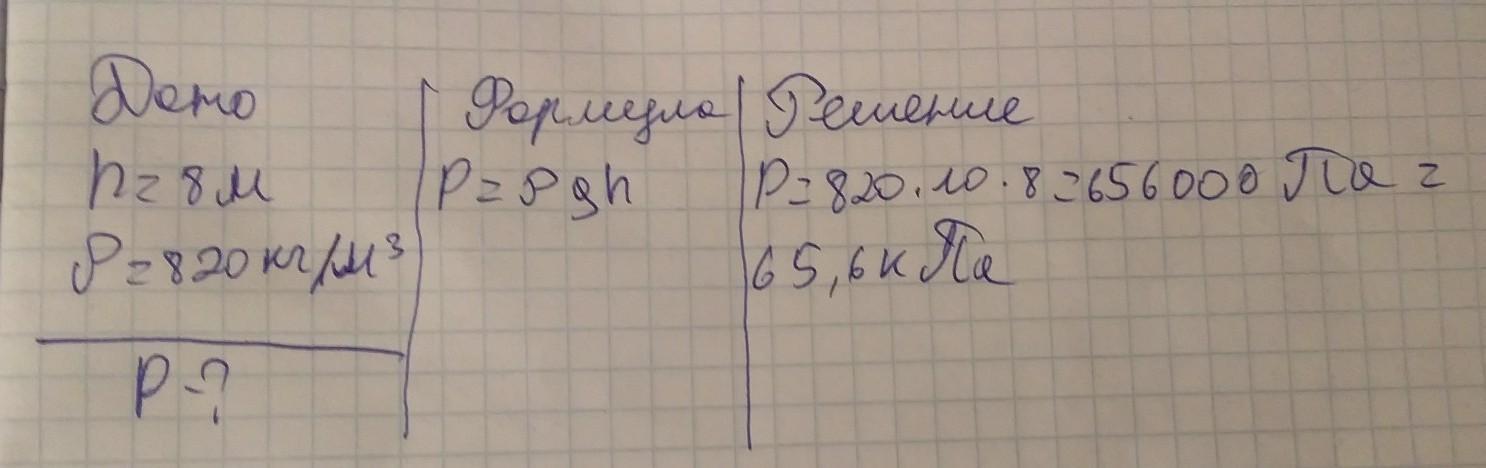 Дано
h = 8 м
ρ = 820 кг/м³
P - ?
Формула
P = ρgh
Решение
P = 820 . 10 · 8 = 656000 Па =
65,6 кПа